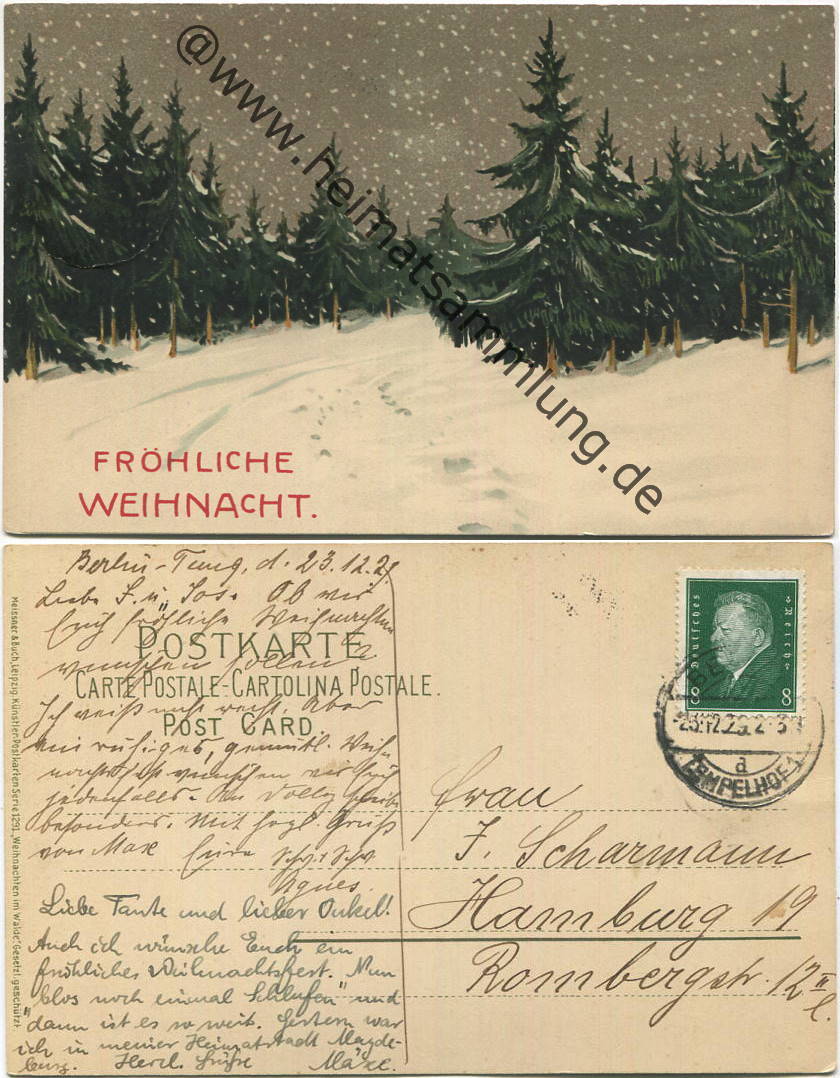 @www.heimatsammlung.de
FRÖHLICHE
WEIHNACHT.
Berlin-Temp, d. 23.12.29
Liebe F. u. Jos. Ob wir
Euch fröhliche Weihnachten
wünschen sollen?
Ich weiß nicht recht. Aber
ein ruhiges, gemütl. Weih-
nachtsfest wünschen wir Euch
jedenfalls. An Dolly schreibe
besonders. Mit herzl. Gruß
von Max Eure Schw.
Agnes.
Liebe Tante und lieber Onkel!
Auch ich wünsche Euch ein
fröhliches Weihnachtsfest. "Nun
blos noch einmal Schlafen" und
dann ist es so weit. Gestern war
ich in meiner Heimatstadt Magde-
burg. Herzl. Grüße Mäxe.
POSTKARTE
CARTE POSTALE-CARTOLINA POSTALE.
POST CARD
Meissner & Buch, Leipzig, Künstler-Postkarten Serie 1291, "Weihnachten im Walde". Gesetzl. geschützt.
Deutsches Reich
8 8
23.12.29.2-3
a
TEMPELHOF 1
Frau
F. Scharmann
Hamburg 19
Rombergstr. 12 II
l.